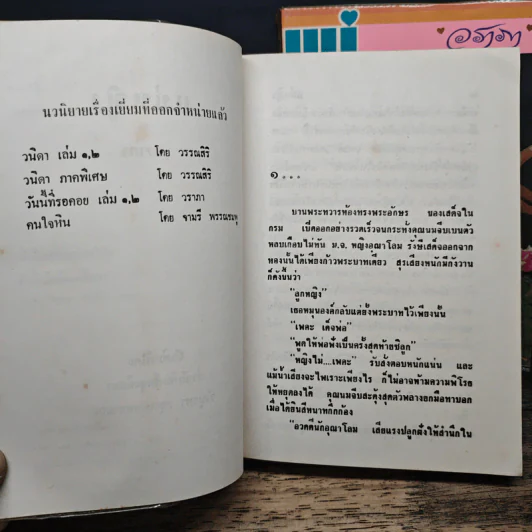 นวนิยายเรื่องเยี่ยมที่ออกจำหน่ายแล้ว
วนิดา เล่ม ๑,๒ โดย วรรณสิริ
วนิดา ภาคพิเศษ โดย วรรณสิริ
วันนี้ที่รอคอย เล่ม ๑,๒ โดย วราภา
คนใจหิน โดย จามรี พรรณชมพู
วราภา
๑...
บานพระทวารห้องทรงพระอักษร ของเสด็จใน
กรม เปิดออกอย่างรวดเร็วจนกระทั่งคุณนมจีบเบนตัว
หลบเกือบไม่ทัน ม.จ. หญิงอุณาโลม รังษีเสด็จออกจาก
ห้องนั้นได้เพียงก้าวพระบาทเดียว สุรเสียงหนักมีกังวาน
ก็ดังขึ้นว่า
"ลูกหญิง"
เธอหมุนองค์กลับแต่ยั้งพระบาทไว้เพียงนั้น
"เพคะ เด็จพ่อ"
"พูดให้พ่อฟังเป็นครั้งสุดท้ายซิลูก"
"หญิงไม่....เพคะ" รับสั่งตอบหนักแน่น และ
แม้น้ำเสียงจะไพเราะเพียงไร ก็ไม่อาจห้ามความพิโรธ
ให้หยุดลงได้ คุณนมจีบสะดุ้งสุดตัวพลางยกมือทาบอก
เมื่อได้ยินสีหนาทกึกก้อง
"อวดดีนักอุณาโลม เสียแรงปลูกฝังให้สำนึกใน